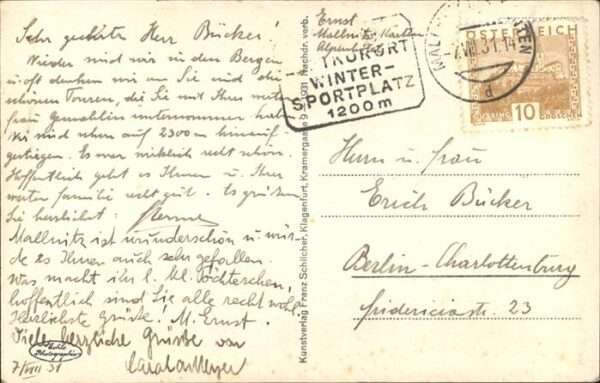 Sehr geehrter Herr Bücker!
Wieder sind wir in den Bergen
u. oft denken wir an Sie und die
schönen Touren, die Sie mit Ihrer werten
Frau Gemahlin unternommen haben.
sind schon auf 2300 m hinauf-
gestiegen. Es war wirklich sehr schön.
Hoffentlich geht es Ihnen u. Ihrer
werten Familie recht gut. Es grüßen
Sie herzlichst
Mallnitz ist wunderschön u. wür-
de es Ihnen auch sehr gefallen.
Was macht ihr l. kl. Töchterchen,
hoffentlich sind Sie alle recht wohl.
Herzlichste Grüße! M. Ernst.
Viele herzliche Grüße von
7/VIII 31
Echte
Photographie
Kunstverlag Franz Schilcher, Klagenfurt, Kramergasse 9 1931 Nachdr. verb.
Ernst
Mallnitz, Kärnten
KURORT
WINTER-
SPORTPLATZ
1200 m
MALLNITZ
-7.VIII.31.14
d
ÖSTERREICH
10
GROSCHEN
Herrn u. Frau
Erich Bücker
Berlin-Charlottenburg
Fridericiastr. 23